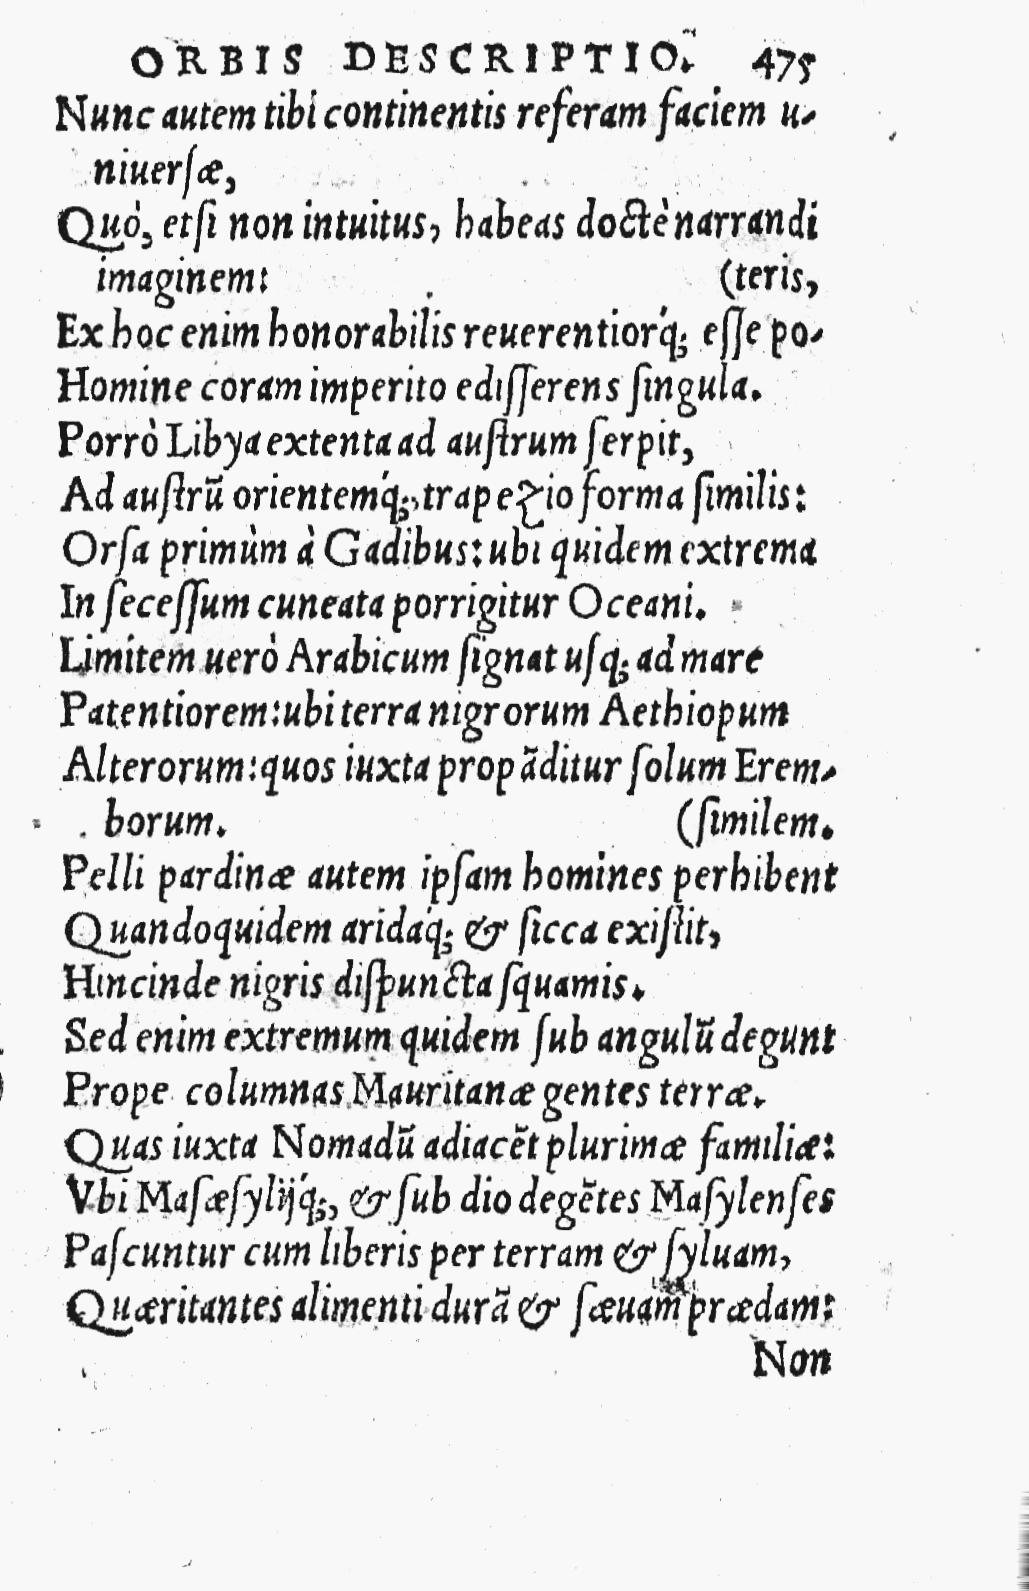 ORBIS DESCRIPTIO. 475
Nunc autem tibi continentis referam faciem u-
niuerſæ,
Quò, etſi non intuitus, habeas doctè narrandi
imaginem: (teris,
Ex hoc enim honorabilis reuerentiorq́; eſſe po-
Homine coram imperito ediſſerens ſingula.
Porrò Libya extenta ad auſtrum ſerpit,
Ad auſtrũ orientemq́;, trapezio forma ſimilis:
Orſa primùm à Gadibus: ubi quidem extrema
In ſeceſſum cuneata porrigitur Oceani.
Limitem uerò Arabicum ſignat uſq; ad mare
Patentiorem: ubi terra nigrorum Aethiopum
Alterorum: quos iuxta propãditur ſolum Erem-
borum. (ſimilem.
Pelli pardinæ autem ipſam homines perhibent
Quandoquidem aridaq́; & ſicca exiſtit,
Hincinde nigris diſpuncta ſquamis.
Sed enim extremum quidem ſub angulũ degunt
Prope columnas Mauritanæ gentes terræ.
Quas iuxta Nomadũ adiacẽt plurimæ familiæ:
Vbi Maſæſylijq́;, & ſub dio degẽtes Maſylenſes
Paſcuntur cum liberis per terram & ſyluam,
Quæritantes alimenti durã & ſæuam prædam:
Non